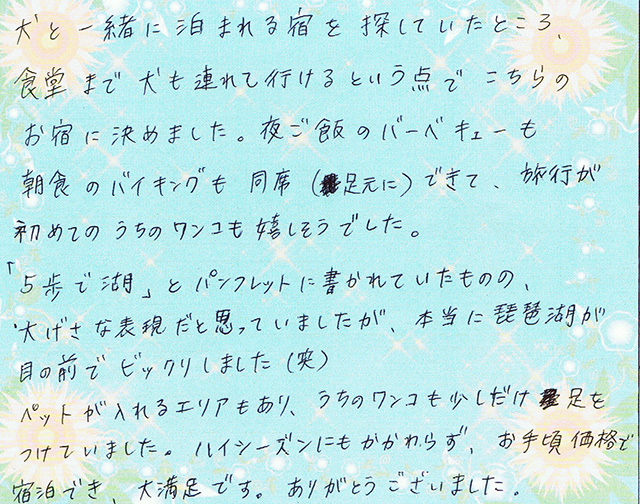 犬と一緒に泊まれる宿を探していたところ、
食堂まで犬も連れて行けるという点でこちらの
お宿に決めました。夜ご飯のバーベキューも
朝食のバイキングも同席(足元に)できて、旅行が
初めてのうちのワンコも嬉しそうでした。
「5歩で湖」とパンフレットに書かれていたものの、
大げさな表現だと思っていましたが、本当に琵琶湖が
目の前でビックリしました(笑)
ペットが入れるエリアもあり、うちのワンコも少しだけ足を
つけていました。ハイシーズンにもかかわらず、お手頃価格で
宿泊でき、大満足です。ありがとうございました。